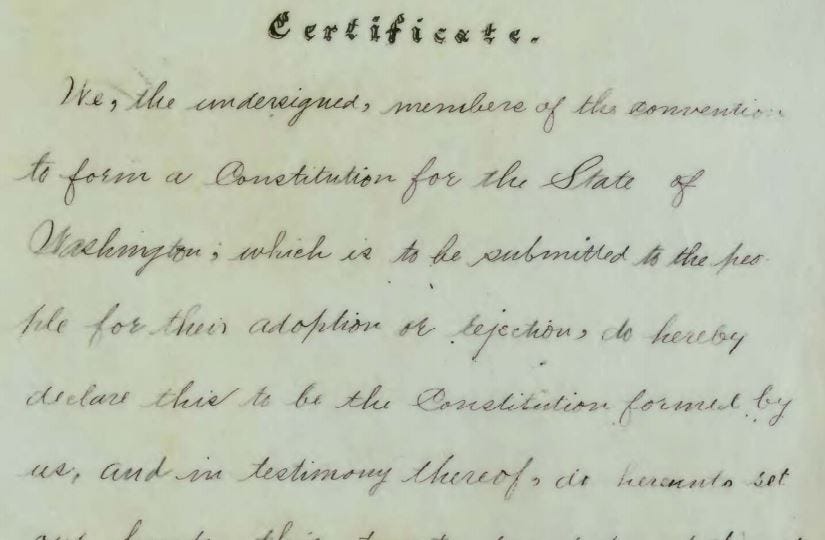 Certificate.
We, the undersigned, members of the convention
to form a Constitution for the State of
Washington; which is to be submitted to the peo-
ple for their adoption or rejection, do hereby
declare this to be the Constitution formed by
us, and in testimony thereof, do hereunto set